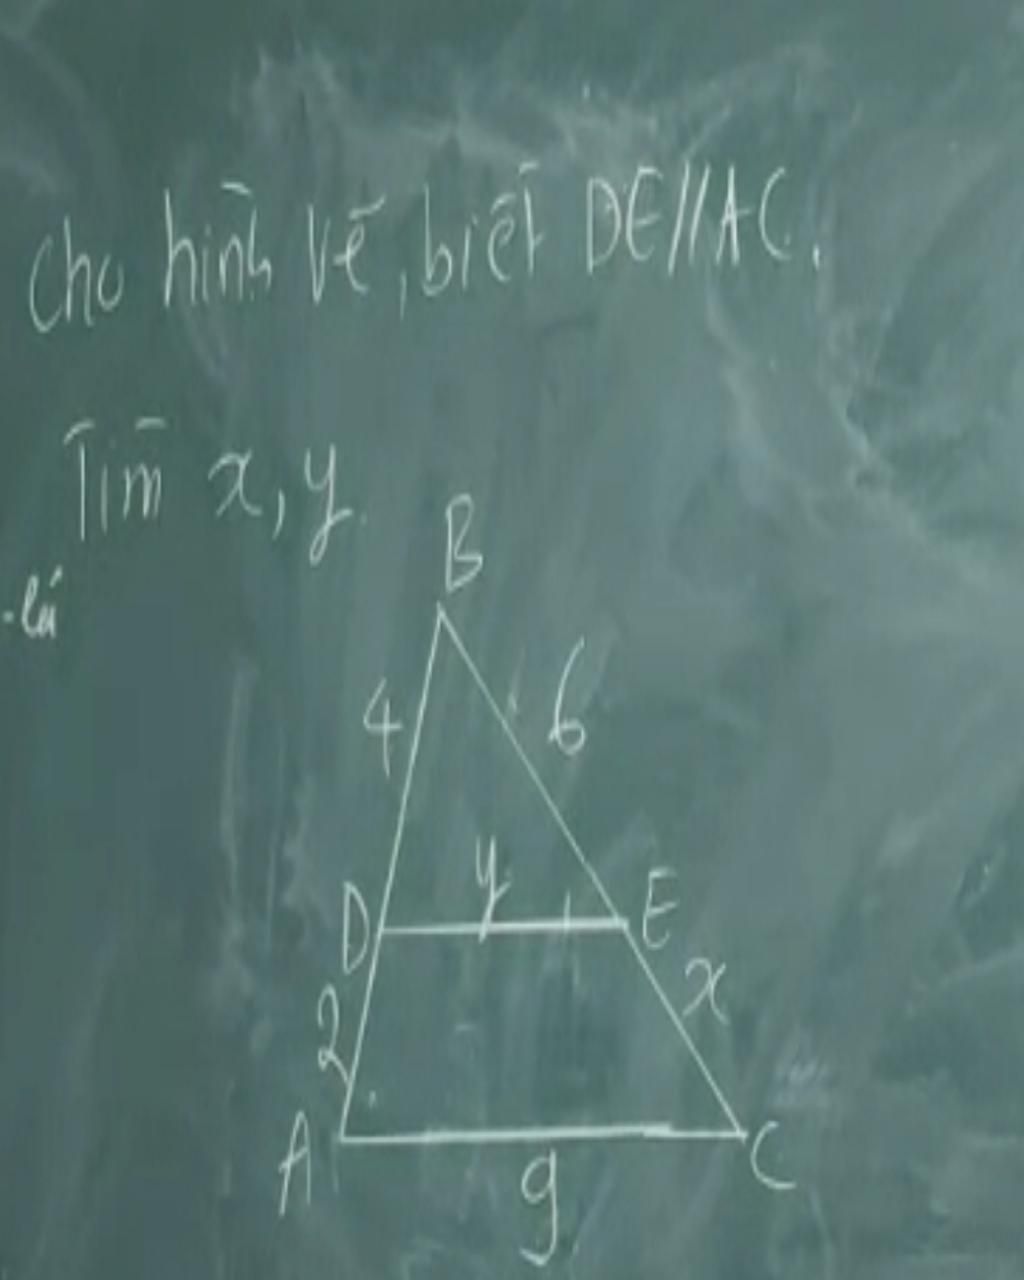 Cho hình vẽ, biết DE//AC.
Tìm x, y.
B
4
6
y
D
E
2
x
A
C
9